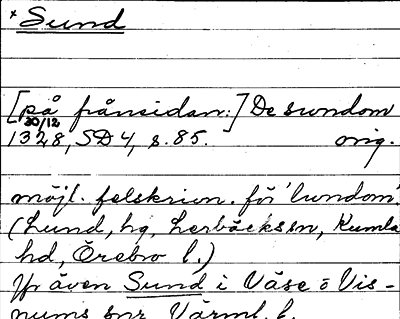 * Sund
[på frånsidan:] De sundom
30/12
1328, SD 4, s. 85. orig.
möjl. felskrivn. för 'lundom'
(Lund, hg, Lerbäckssn, Kumla
hd, Örebro l.)
Jfr även Sund i Väse o Vis-
nums snr Värml. l.